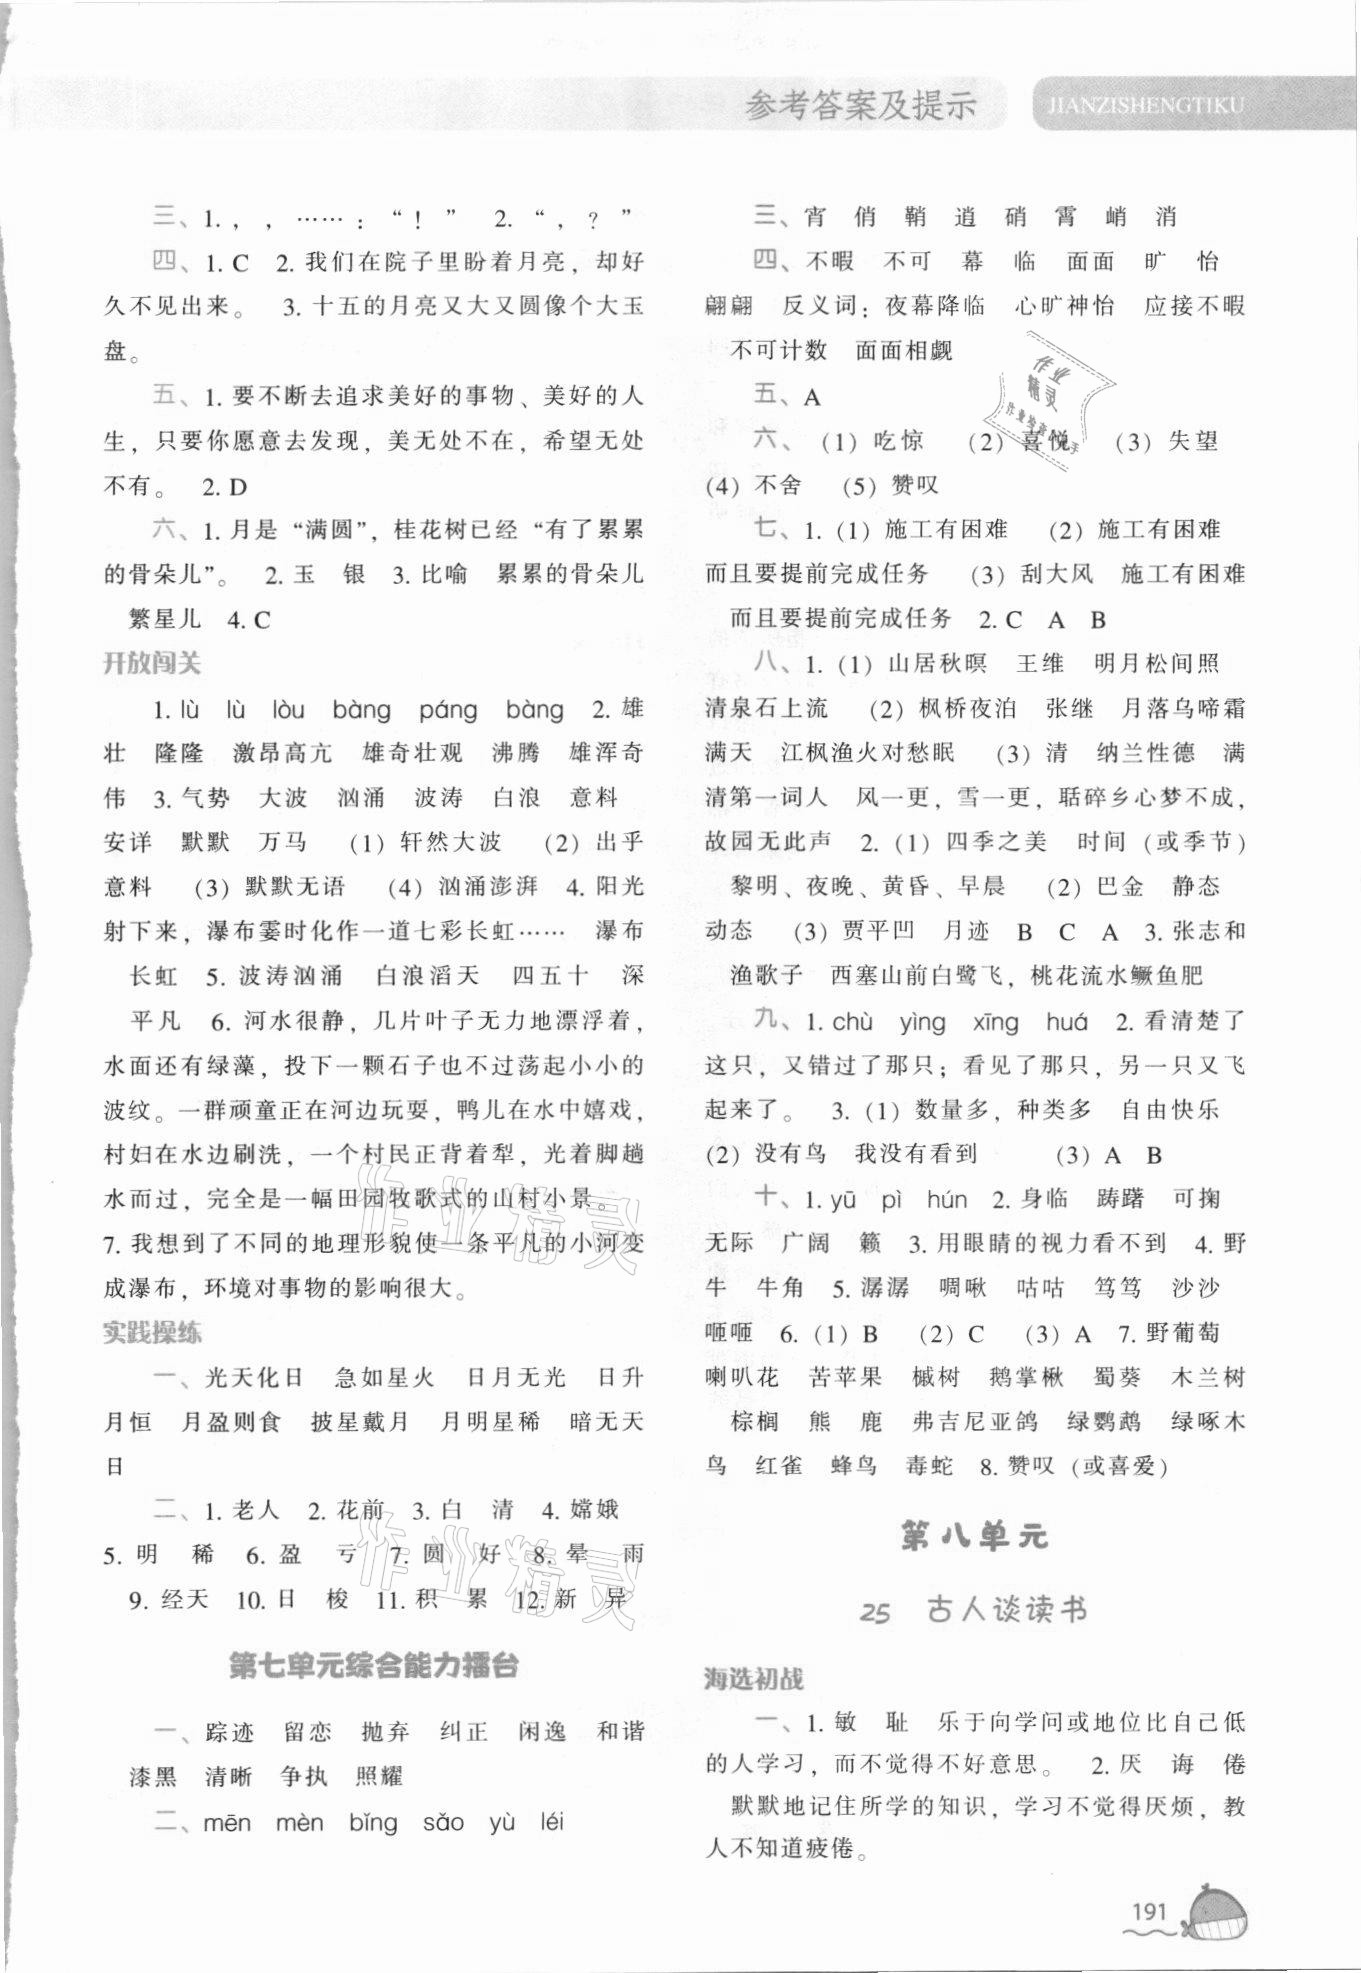 参考答案及提示
JIANZISHENGTIKU
三、1. ， ， ……： “！” 2. “，？”
四、1. C 2. 我们在院子里盼着月亮，却好
久不见出来。 3. 十五的月亮又大又圆像个大玉
盘。
五、1. 要不断去追求美好的事物、美好的人
生，只要你愿意去发现，美无处不在，希望无处
不有。 2. D
六、1. 月是“满圆”，桂花树已经“有了累累
的骨朵儿”。 2. 玉 银 3. 比喻 累累的骨朵儿
繁星儿 4. C
开放闯关
1. lù lù lòu bàng páng bàng 2. 雄
壮 隆隆 激昂高亢 雄奇壮观 沸腾 雄浑奇
伟 3. 气势 大波 汹涌 波涛 白浪 意料
安详 默默 万马 (1) 轩然大波 (2) 出乎
意料 (3) 默默无语 (4) 汹涌澎湃 4. 阳光
射下来，瀑布霎时化作一道七彩长虹…… 瀑布
长虹 5. 波涛汹涌 白浪滔天 四五十 深
平凡 6. 河水很静，几片叶子无力地漂浮着，
水面还有绿藻，投下一颗石子也不过荡起小小的
波纹。一群顽童正在河边玩耍，鸭儿在水中嬉戏，
村妇在水边刷洗，一个村民正背着犁，光着脚趟
水而过，完全是一幅田园牧歌式的山村小景。
7. 我想到了不同的地理形貌使一条平凡的小河变
成瀑布，环境对事物的影响很大。
实践操练
一、光天化日 急如星火 日月无光 日升
月恒 月盈则食 披星戴月 月明星稀 暗无天
日
二、1. 老人 2. 花前 3. 白 清 4. 嫦娥
5. 明 稀 6. 盈 亏 7. 圆 好 8. 晕 雨
9. 经天 10. 日 梭 11. 积 累 12. 新 异
第七单元综合能力擂台
一、踪迹 留恋 抛弃 纠正 闲逸 和谐
漆黑 清晰 争执 照耀
二、mēn mèn bǐng sǎo yù léi
三、宵 俏 鞘 逍 硝 霄 峭 消
四、不暇 不可 幕 临 面面 旷 怡
翩翩 反义词：夜幕降临 心旷神怡 应接不暇
不可计数 面面相觑
五、A
六、(1) 吃惊 (2) 喜悦 (3) 失望
(4) 不舍 (5) 赞叹
七、1. (1) 施工有困难 (2) 施工有困难
而且要提前完成任务 (3) 刮大风 施工有困难
而且要提前完成任务 2. C A B
八、1. (1) 山居秋暝 王维 明月松间照
清泉石上流 (2) 枫桥夜泊 张继 月落乌啼霜
满天 江枫渔火对愁眠 (3) 清 纳兰性德 满
清第一词人 风一更，雪一更，聒碎乡心梦不成，
故园无此声 2. (1) 四季之美 时间（或季节）
黎明、夜晚、黄昏、早晨 (2) 巴金 静态
动态 (3) 贾平凹 月迹 B C A 3. 张志和
渔歌子 西塞山前白鹭飞，桃花流水鳜鱼肥
九、1. chù yìng xīng huá 2. 看清楚了
这只，又错过了那只；看见了那只，另一只又飞
起来了。 3. (1) 数量多，种类多 自由快乐
(2) 没有鸟 我没有看到 (3) A B
十、1. yū pì hún 2. 身临 踌躇 可掬
无际 广阔 籁 3. 用眼睛的视力看不到 4. 野
牛 牛角 5. 潺潺 啁啾 咕咕 笃笃 沙沙
咂咂 6. (1) B (2) C (3) A 7. 野葡萄
喇叭花 苦苹果 槭树 鹅掌楸 蜀葵 木兰树
棕榈 熊 鹿 弗吉尼亚鸽 绿鹦鹉 绿啄木
鸟 红雀 蜂鸟 毒蛇 8. 赞叹（或喜爱）
第八单元
25 古人谈读书
海选初战
一、1. 敏 耻 乐于向学问或地位比自己低
的人学习，而不觉得不好意思。 2. 厌 诲 倦
默默地记住所学的知识，学习不觉得厌烦，教
人不知道疲倦。
191
作业精灵
作业精灵
作业
精灵